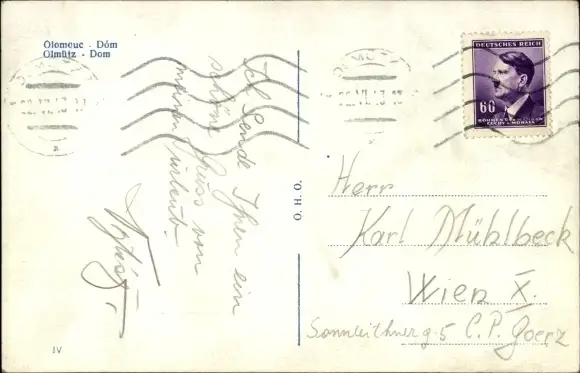 Olomouc - Dóm
Olmütz - Dom
Ich sende Ihnen ein
schöne Gruss von
meinen Urlaub.
O. H. O.
IV
DEUTSCHES REICH
60
BÖHMEN U. MÄHREN
ČECHY A MORAVA
Herr
Karl Mühlbeck
Wien X.
Sonnleithnerg. 5 C.P. Goerz